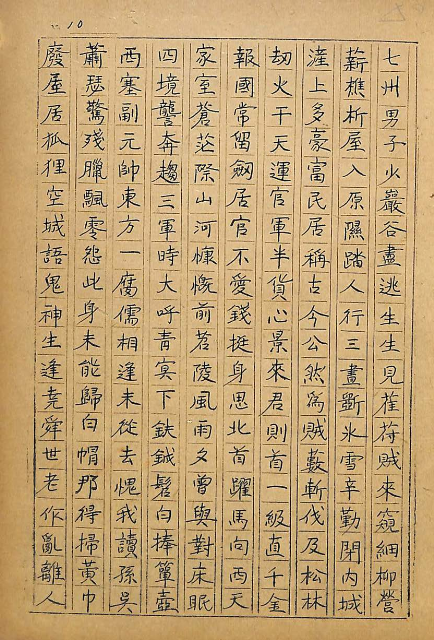 10
七州男子火巖谷盡逃生生見萑苻賊來窺細柳營
薪樵析屋入原隰踏人行三晝斷氷雪辛勤閉內城
漄上多豪富民居稱古今公然爲賊藪斬伐及松林
劫火干天運官軍半貨心景來君則首一級直千金
報國常留劒居官不愛錢挺身思北首躍馬向西天
家室蒼茫際山河慷慨前茗陵風雨夕曾與對床眠
四境聾奔趨三軍時大呼靑冥下鈇鉞髩白捧簞壺
西塞副元帥東方一腐儒相逢未從去愧我讀孫吳
蕭瑟驚殘臘飄零怨此身未能歸白帽那得掃黃巾
廢屋居狐狸空城語鬼神生逢堯舜世老作亂離人